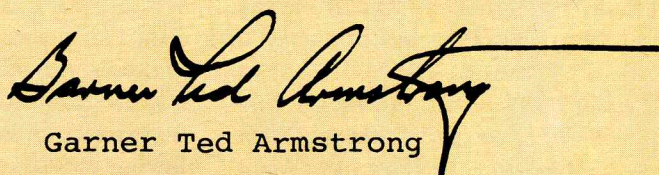 Garner Ted Armstrong
Garner Ted Armstrong